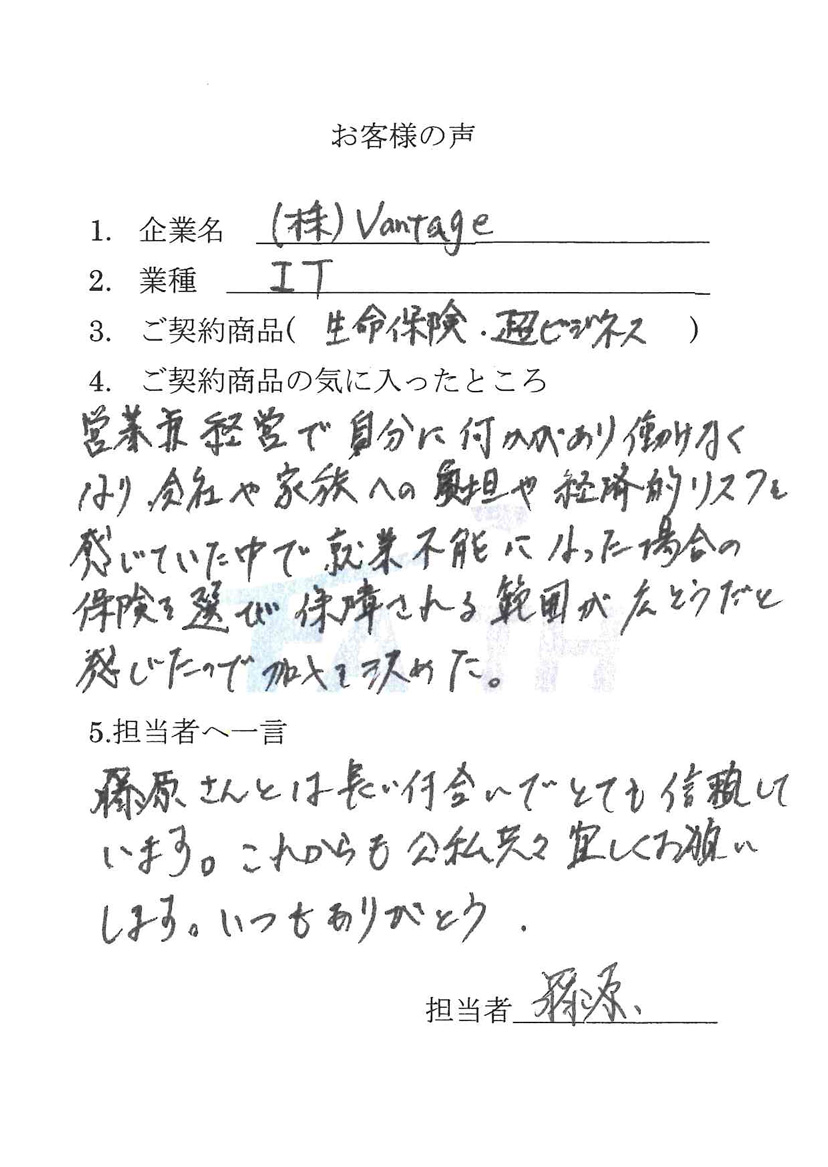 お客様の声
1. 企業名 (株)Vantage
2. 業種 IT
3. ご契約商品( 生命保険・超ビジネス )
4. ご契約商品の気に入ったところ
営業兼経営で自分に何かがあり働けなく
なり、会社や家族への負担や経済的リスクを
感じていた中で就業不能になった場合の
保険を選び保障される範囲が広そうだと
感じたので加入を決めた。
FAITH
5.担当者へ一言
藤原さんとは長い付合いでとても信頼して
います。これからも公私共々宜しくお願い
します。いつもありがとう.
担当者 藤原